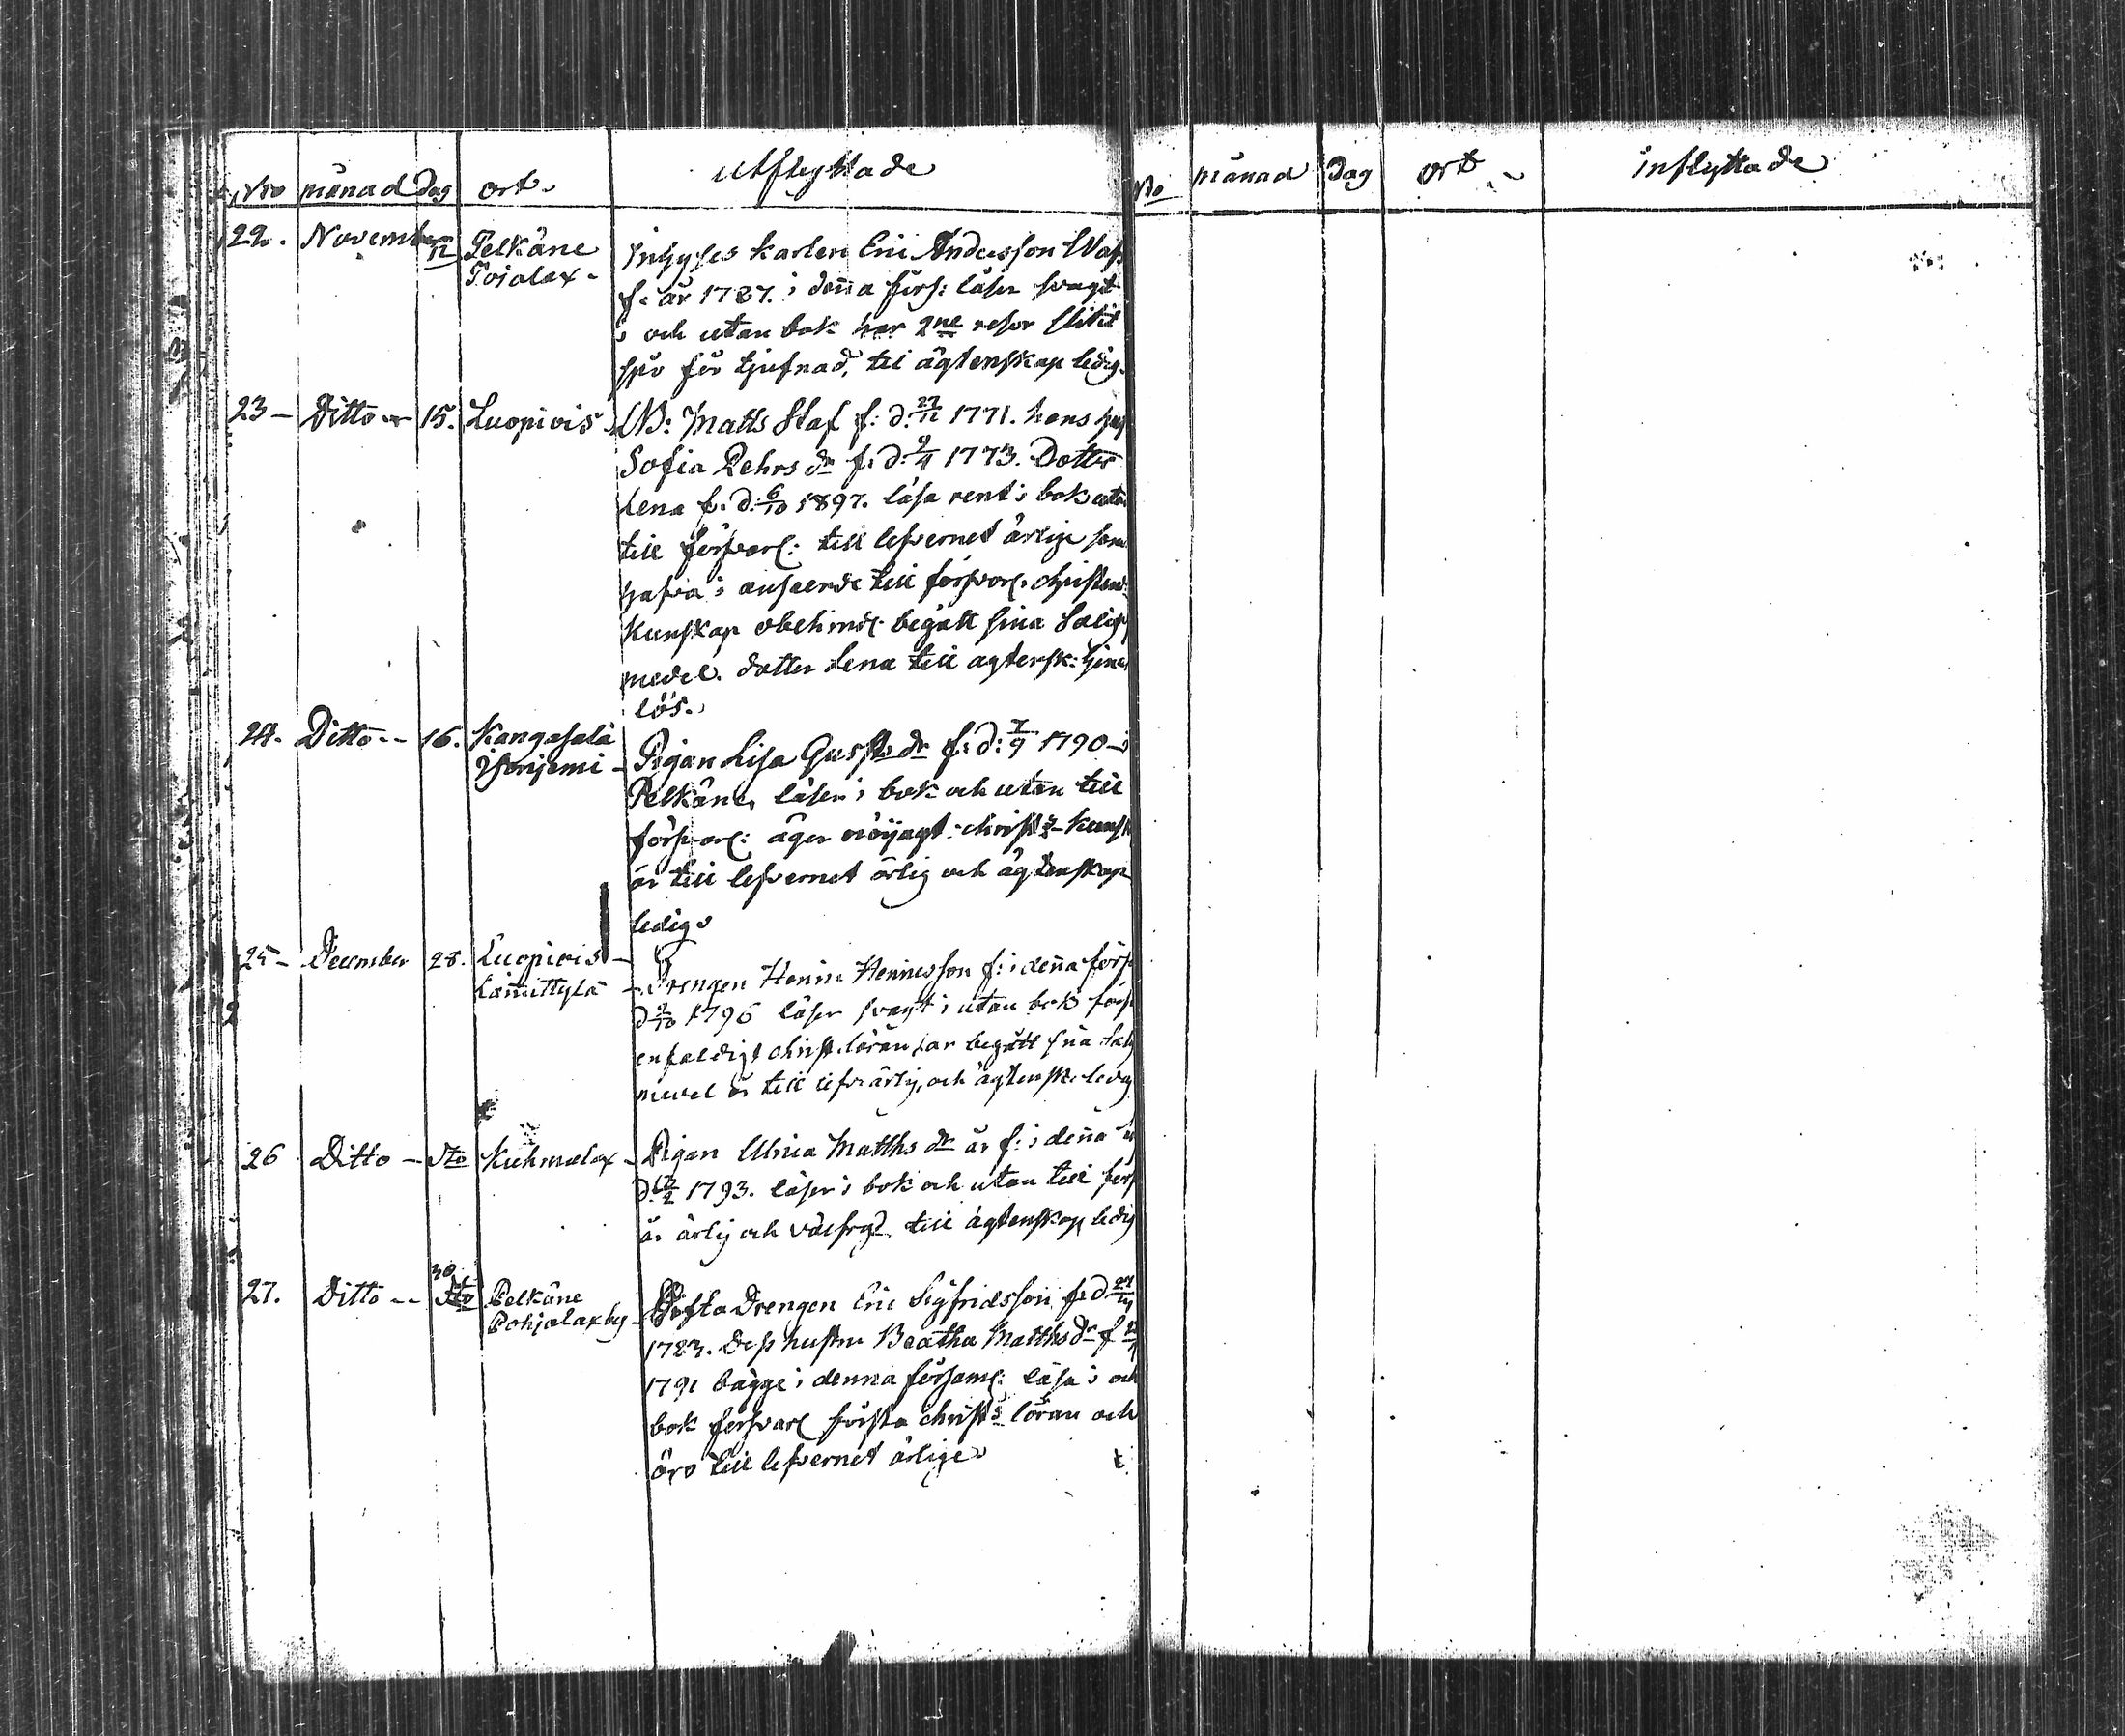 Nro månad Dag ort. Utflyttade
22. November 12 Pelkäne Inhyses karlen Eric Andersson
Pojolax f. år 1787. i denna förs: läser svagt
i och utan bok har 2ne resor slitit
spö för tjufnad, til ägtenskap ledig.
23 Ditto 15. Luopiois NB: Matts Staf f: d. 27/12 1771. hans
Sofia Pehrs dr f: d: 9/4 1773. Dotter
Lena f. d: 6/10 1897. läsa rent i bok
till försvarl: till lefvernet ärlige
hafva i anseende till försvarl. christend:
Kunskap obehindr. begått sina
medel. dotter Lena till agtensk:
lös.
24. Ditto 16. Kangasala Pigan Lisa Gusts dr f: d: 7/9 1790
Pelkäne, läser i bok och utan till
försvarl: äger nöijagt. christ:
är till lefvernet ärlig och ägtenskap
ledig
25 December 28. Luopiois Drengen Henric Henricsson f: i denna förs
1796 läser svagt i utan bok
enfaldigt christ. läran har begått sina
medel är till lefv ärlig, och ägtensk. ledig
26 Ditto dto Kuhmalax Pigan Ulrica Matths dr är f: i denna
d. 13/2 1793. läser i bok och utan till förs
är ärlig och välfrgd till ägtenskap ledig
27. Ditto 30 Pelkäne Drengen Eric Sigfridsson f. d
Pohjalax by
1783. Dess hustru Beatha Matths dr f
1791 bägge i denna församl: läsa i och
bok försvarl förstå christ: läran och
äro till lefvernet ärlige
Nro månad Dag ort inflyttade